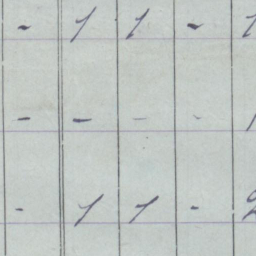 - 1 1 - 1
- - - - 1
- 1 1 - 2